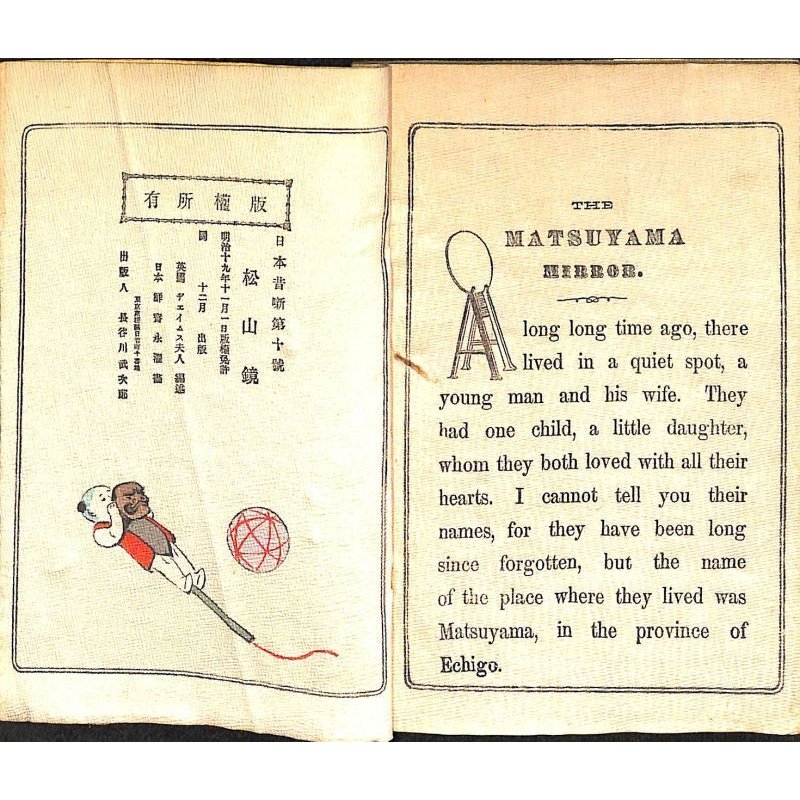 版權所有
日本昔噺第十號
松山鏡
明治十九年十一月一日版權免許
同 十二月 出版
英國 ヂェイムス夫人 編述
日本 鮮齋永濯畵
出版人 長谷川武次郎
THE
MATSUYAMA
MIRROR.
A long long time ago, there
lived in a quiet spot, a
young man and his wife. They
had one child, a little daughter,
whom they both loved with all their
hearts. I cannot tell you their
names, for they have been long
since forgotten, but the name
of the place where they lived was
Matsuyama, in the province of
Echigo.